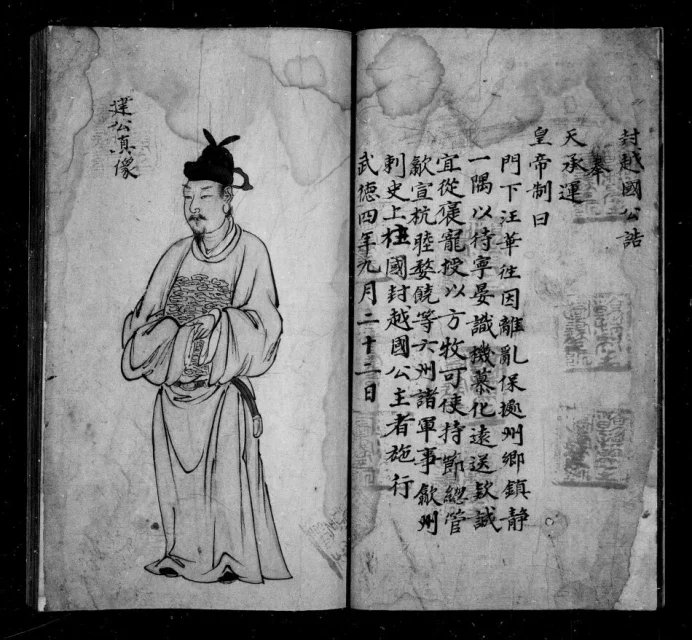 封越國公誥
奉
天承運
皇帝制曰
門下汪華往因離亂保據州鄉鎮靜
一隅以待寧晏識機慕化遠送欵誠
宜從褒寵授以方牧可使持節總管
歙宣杭睦婺饒等六州諸軍事歙州
刺史上柱國封越國公主者施行
武德四年九月二十二日
公真像